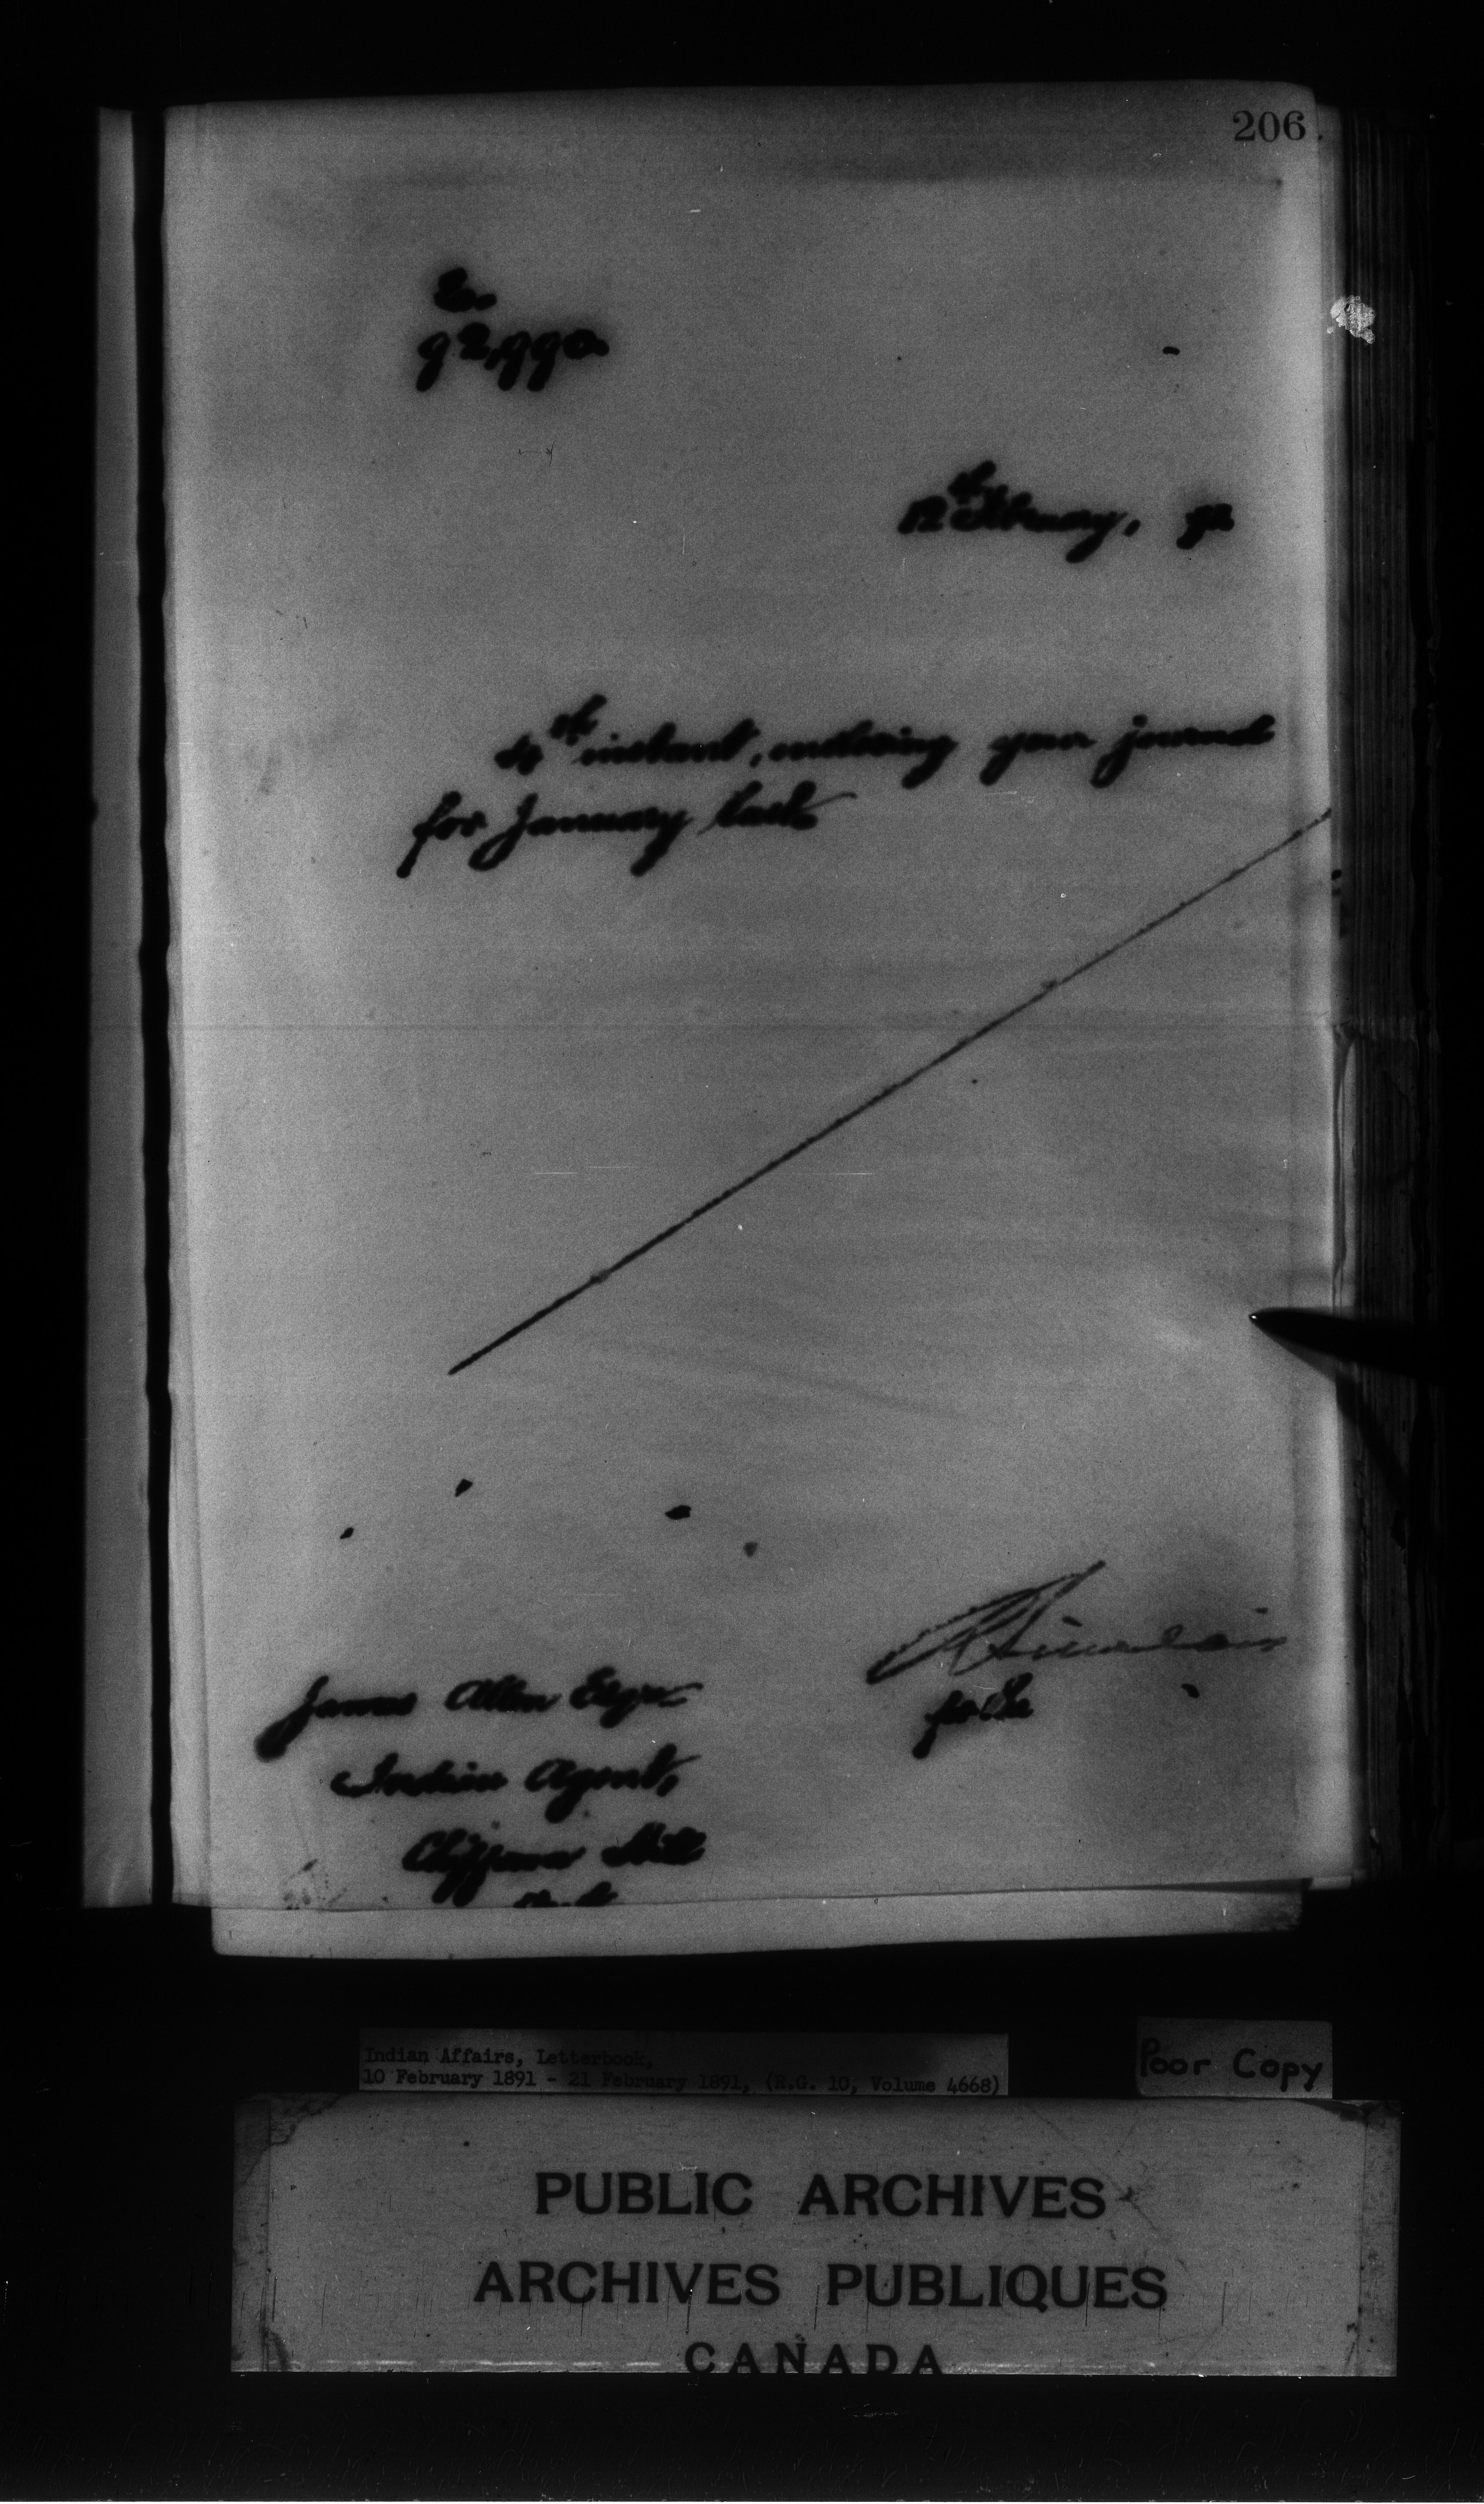 206.
92,990
12th February, 92
4th instant, enclosing your journal
for January last
James Allen Esqre
for De
Indian Agent,
Chippewa Hill
Indian Affairs, Letterbook,
10 February 1891 - 21 February 1891, (R.G. 10, Volume 4668)
Poor Copy
PUBLIC ARCHIVES
ARCHIVES PUBLIQUES
CANADA